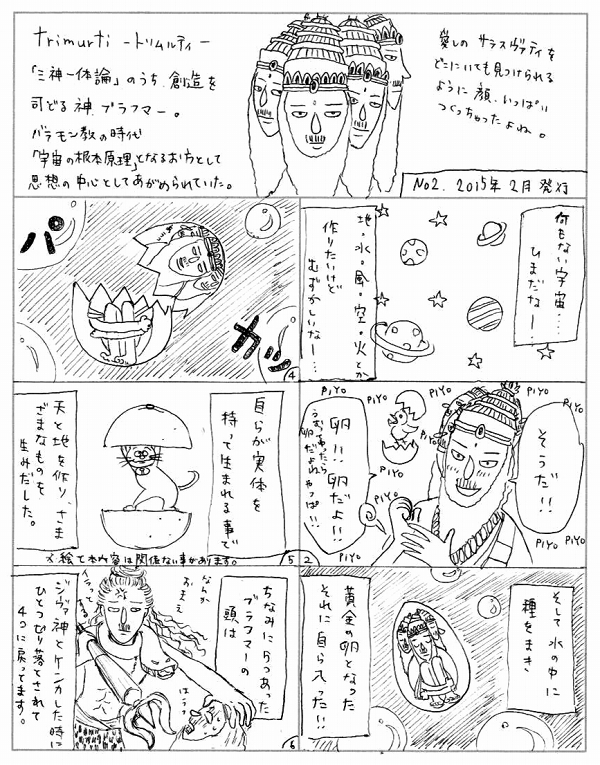 trimurti -トリムルティ-
「三神一体論」のうち、創造を
司どる神、ブラフマー。
バラモン教の時代
「宇宙の根本原理」となるお方として
思想の中心としてあがめられていた。
愛しの サラスヴァティを
どこにいても見つけられる
ように 顔、いっぱい
つくっちゃったよね。
No2. 2015年 2月 発行
何もない宇宙…
ひまだなー…
地・水・風・空・火とか
作りたいけど
むずかしいなー…
そうだ!!
卵!! 卵だよ!!
うむってったら
卵だよね
やっぱ!!
PiYo
PiYo
PiYo
PiYo
PiYo
PiYo
PiYo
PiYo
PiYo
2
そして水の中に
種をまき
黄金の卵となった
それに自ら入った!!
パ
カッ
4
自らが実体を
持って生まれる事で
天と地を作り、さま
ざまなものを
生みだした。
※絵と本内容は関係ない事があります。
5
ちなみに5つあった
ブラフマーの
頭は
シヴァ神とケンカした時に
ひとつ切り落とされて
4つに戻ってます。
なんか
おまえ
6